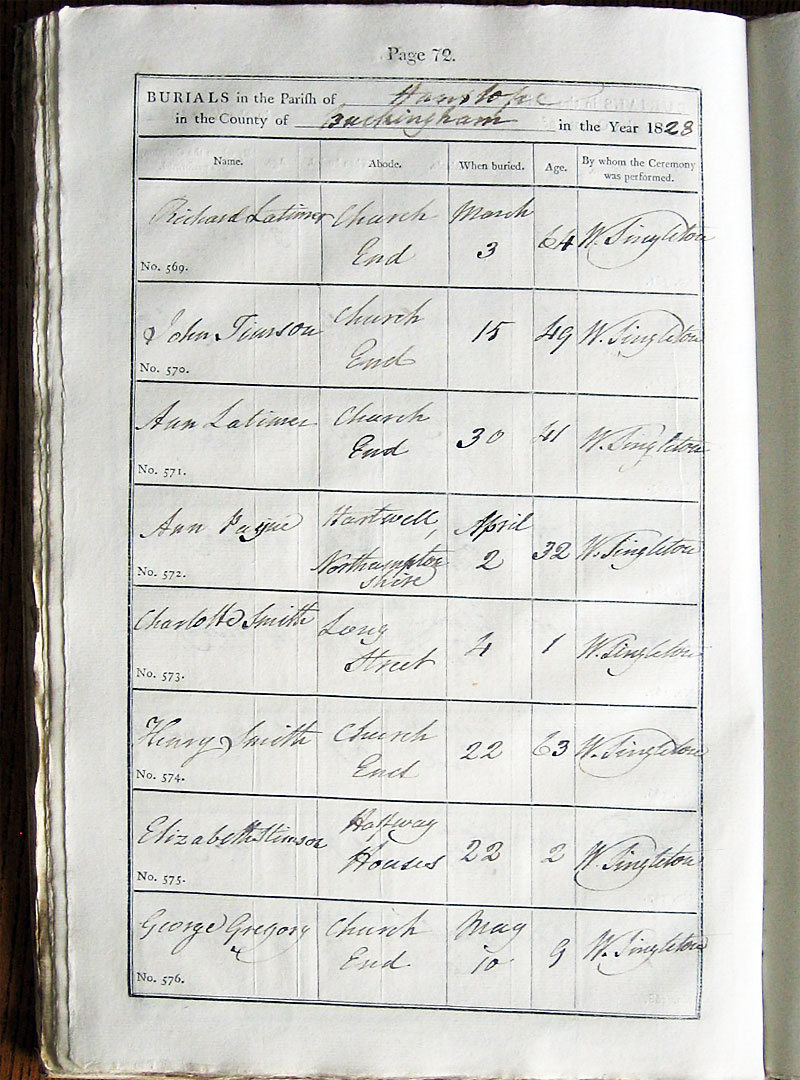 Page 72.
BURIALS in the Parish of Hanslope
in the County of Buckingham in the Year 1828
Name. Abode. When buried. Age. By whom the Ceremony was performed.
Richard Latimer Church March
End 3 64 W. Singleton
No. 569.
John Timson Church 15 49 W. Singleton
End
No. 570.
Ann Latimer Church
End 30 41 W. Singleton
No. 571.
Ann Payne Hartwell, April
Northampton 2 32 W. Singleton
shire
No. 572.
Charlotte Smith Long
Street 4 1 W. Singleton
No. 573.
Henry Smith Church
End 22 63 W. Singleton
No. 574.
Elizabeth Stimson Halfway
Houses 22 2 W. Singleton
No. 575.
George Gregory Church May
End 10 9 W. Singleton
No. 576.